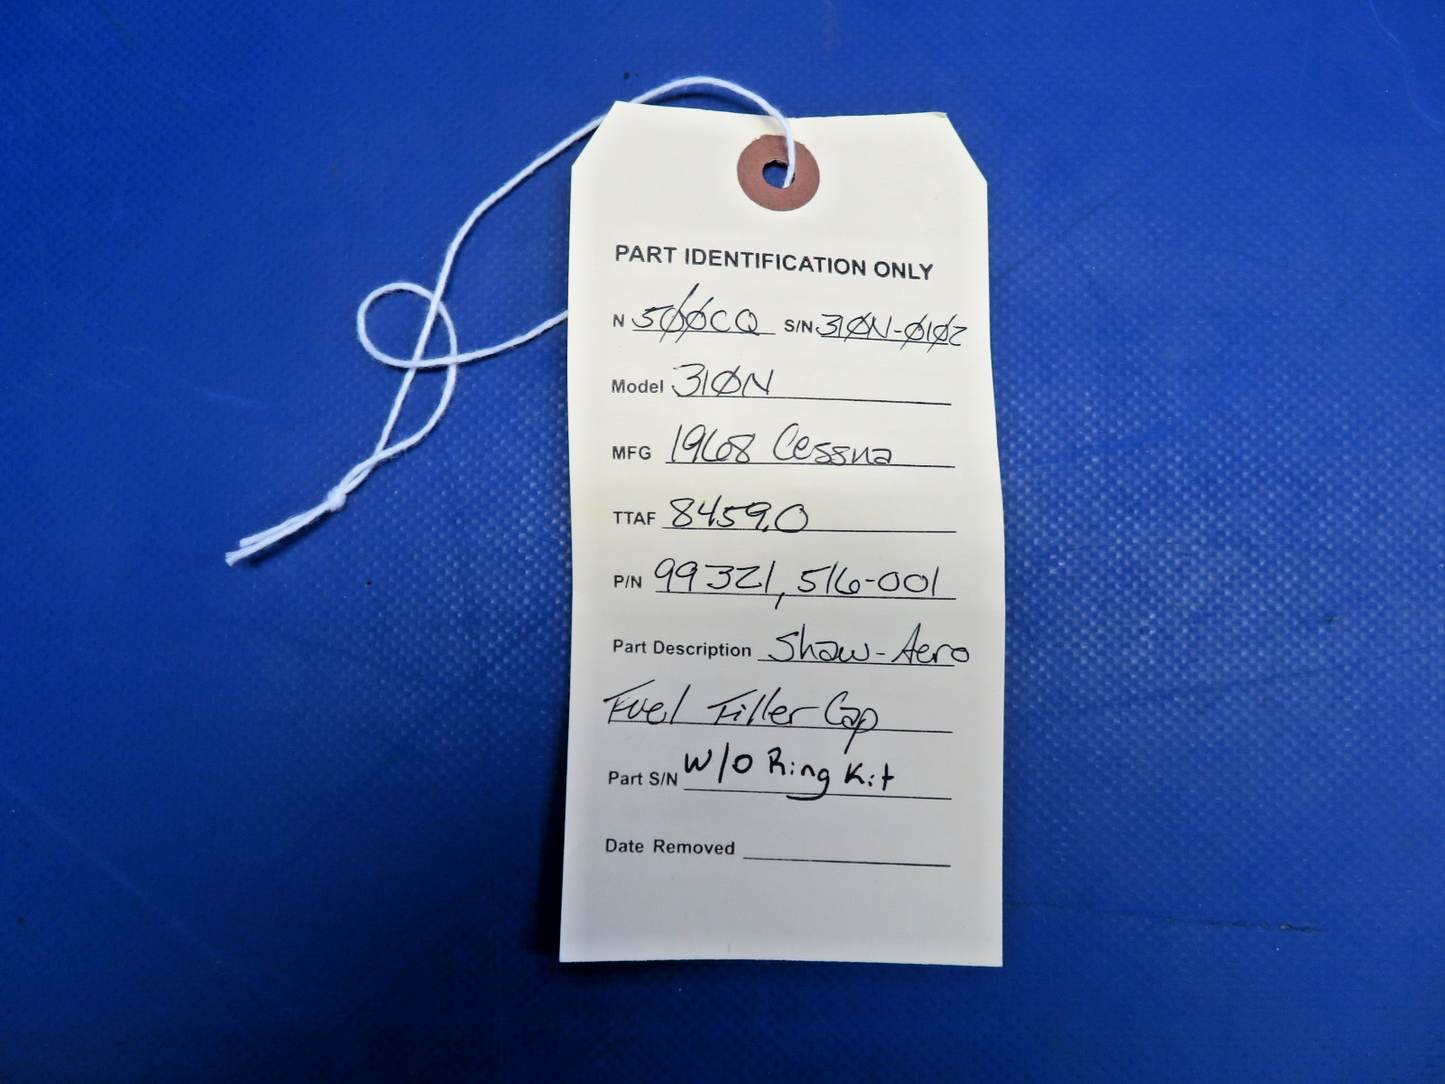 PART IDENTIFICATION ONLY
N 5ØØCQ S/N 31ØN-Ø1Ø2
Model 31ØN
MFG 1968 Cessna
TTAF 8459.0
P/N 99321, 516-001
Part Description Shaw-Aero
Fuel Filler Cap
Part S/N W/O Ring Kit
Date Removed